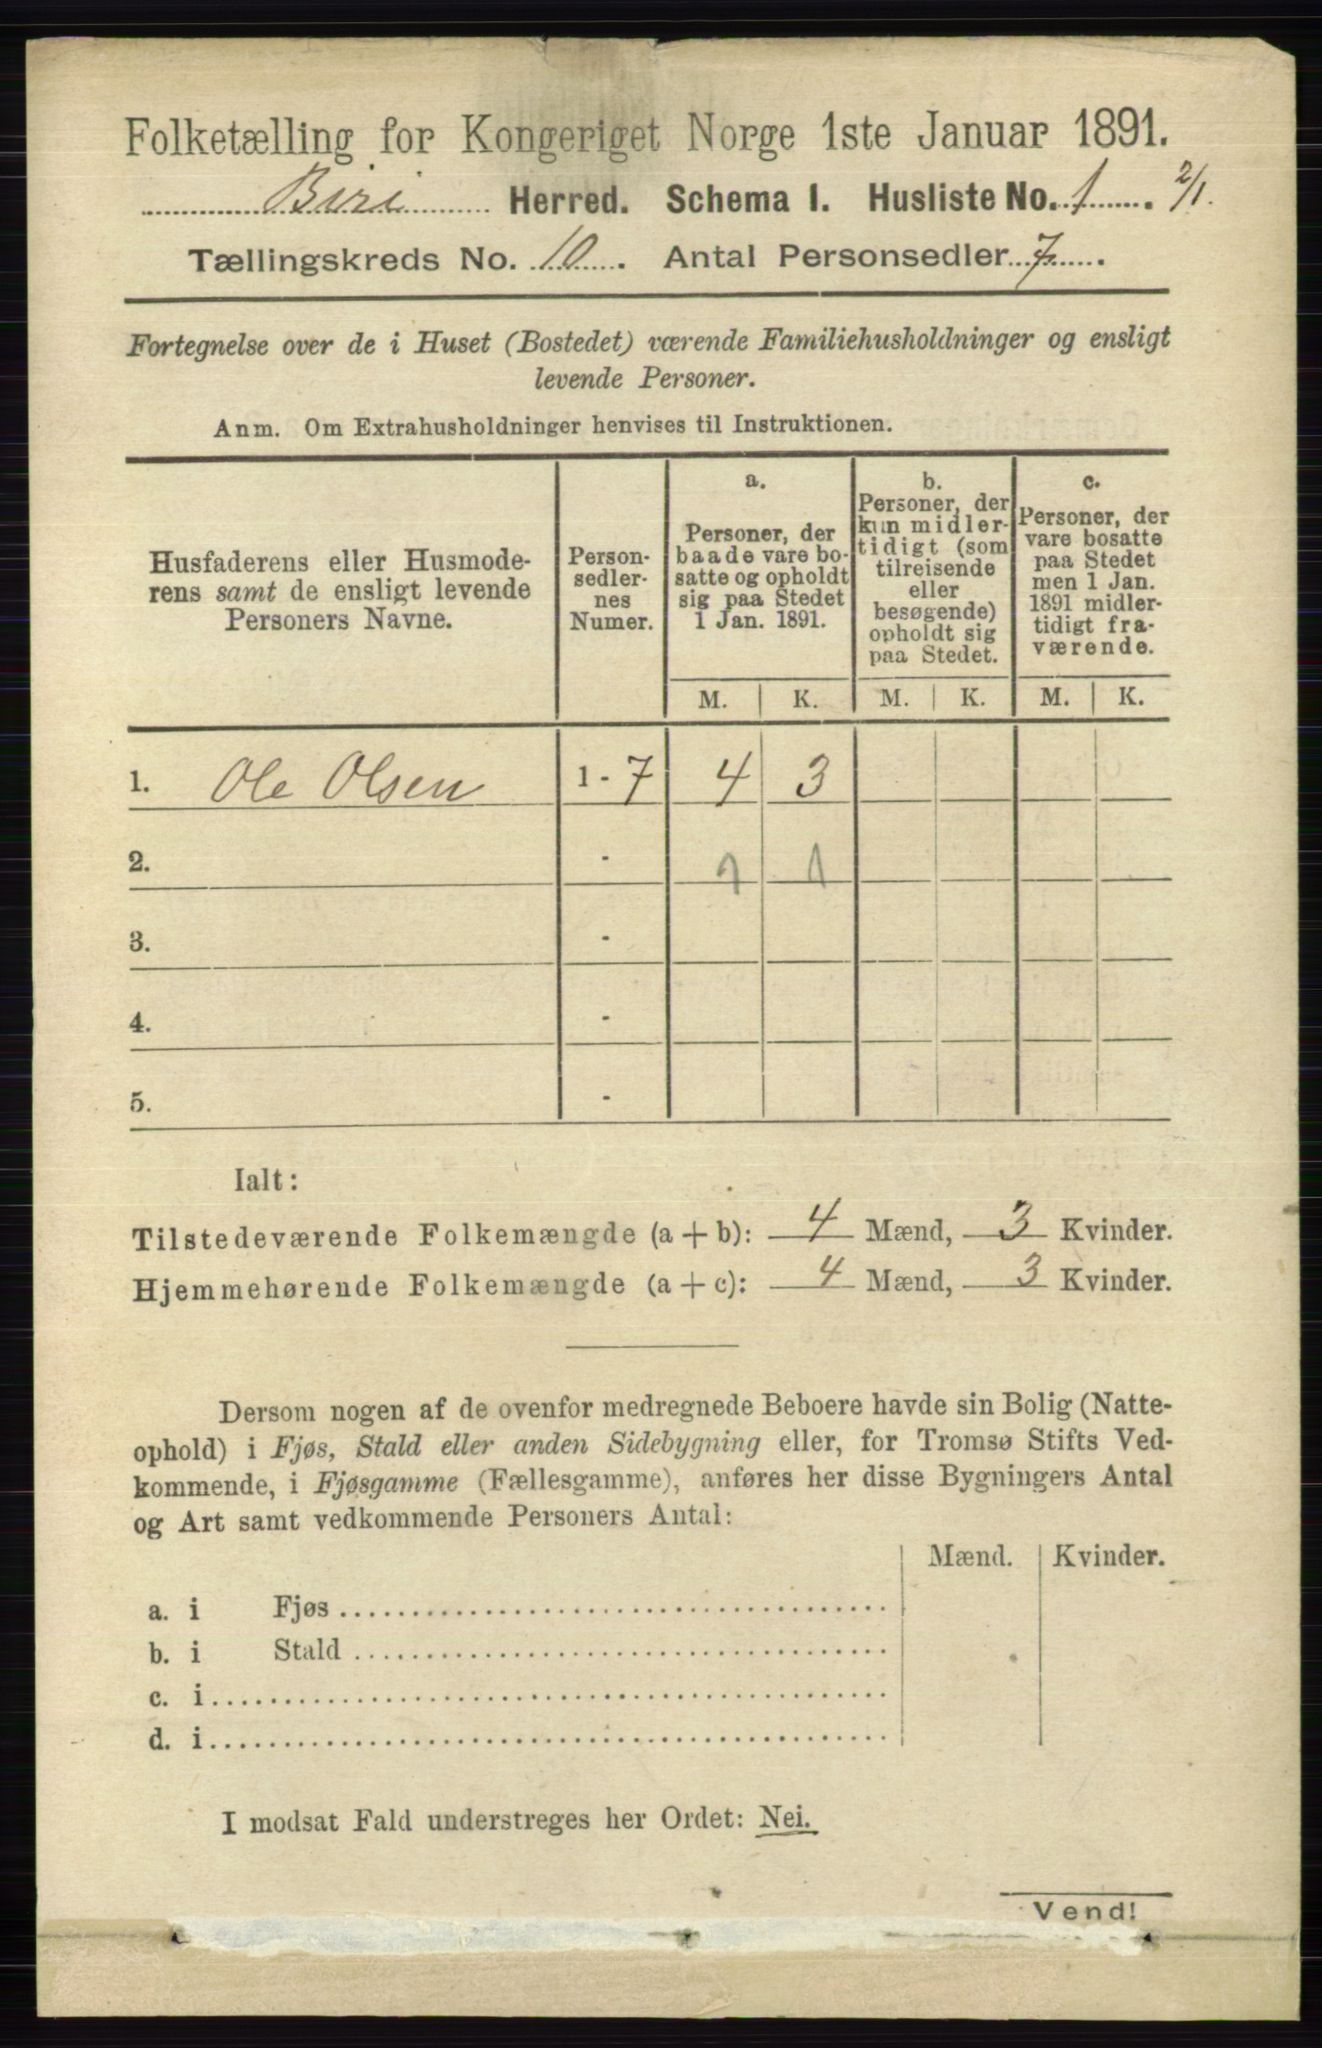 Folketælling for Kongeriget Norge 1ste Januar 1891.
Biri Herred. Schema I. Husliste No. 1. 2/1.
Tællingskreds No. 10. Antal Personsedler 7.
Fortegnelse over de i Huset (Bostedet) værende Familiehusholdninger og ensligt
levende Personer.
Anm. Om Extrahusholdninger henvises til Instruktionen.
Husfaderens eller Husmode-
rens samt de ensligt levende
Personers Navne.
Person-
sedler-
nes
Numer.
a.
Personer, der
baade vare bo-
satte og opholdt
sig paa Stedet
1 Jan. 1891.
b.
Personer, der
kun midler-
tidigt (som
tilreisende
eller
besøgende)
opholdt sig
paa Stedet.
c.
Personer, der
vare bosatte
paa Stedet
men 1 Jan.
1891 midler-
tidigt fra-
værende.
M. K. M. K. M. K.
1. Ole Olsen 1 - 7 4 3
2. - 1 1
3. -
4. -
5. -
Ialt:
Tilstedeværende Folkemængde (a + b): 4 Mænd, 3 Kvinder.
Hjemmehørende Folkemængde (a + c): 4 Mænd, 3 Kvinder.
Dersom nogen af de ovenfor medregnede Beboere havde sin Bolig (Natte-
ophold) i Fjøs, Stald eller anden Sidebygning eller, for Tromsø Stifts Ved-
kommende, i Fjøsgamme (Fællesgamme), anføres her disse Bygningers Antal
og Art samt vedkommende Personers Antal:
Mænd. Kvinder.
a. i Fjøs
b. i Stald
c. i
d. i
I modsat Fald understreges her Ordet: Nei.
Vend!